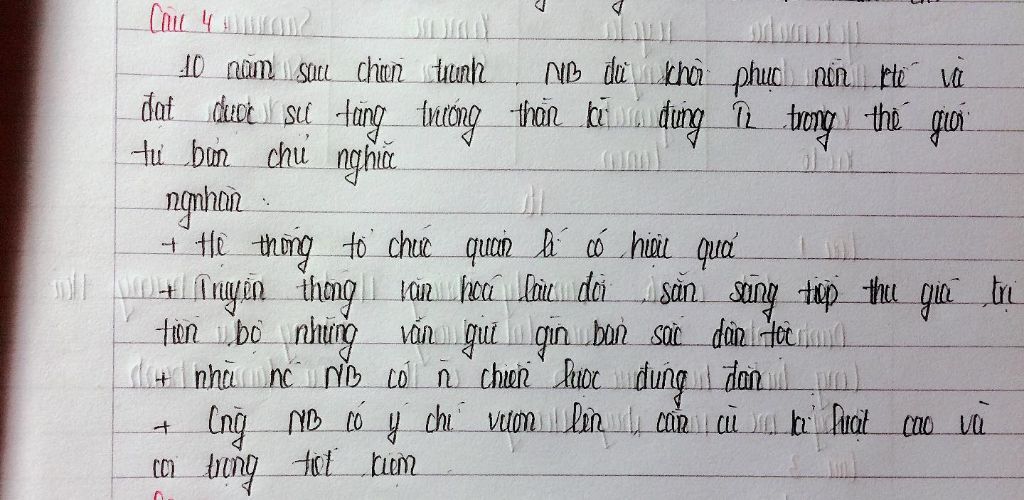 Câu 4:
10 năm sau chiến tranh, NB đã khôi phục nền ktế và
đạt được sự tăng trưởng thần kì, đứng T2 trong thế giới
tư bản chủ nghĩa
ngnhân:
+ Hệ thống tổ chức quản lí có hiệu quả
+ Truyền thống văn hoá lâu đời, sẵn sàng tiếp thu giá trị
tiến bộ nhưng vẫn giữ gìn bản sắc dân tộc
+ nhà nc NB có n chiến lược đúng đắn
+ Cng NB có ý chí vươn lên, cần cù, kỉ luật cao và
coi trọng tiết kiệm